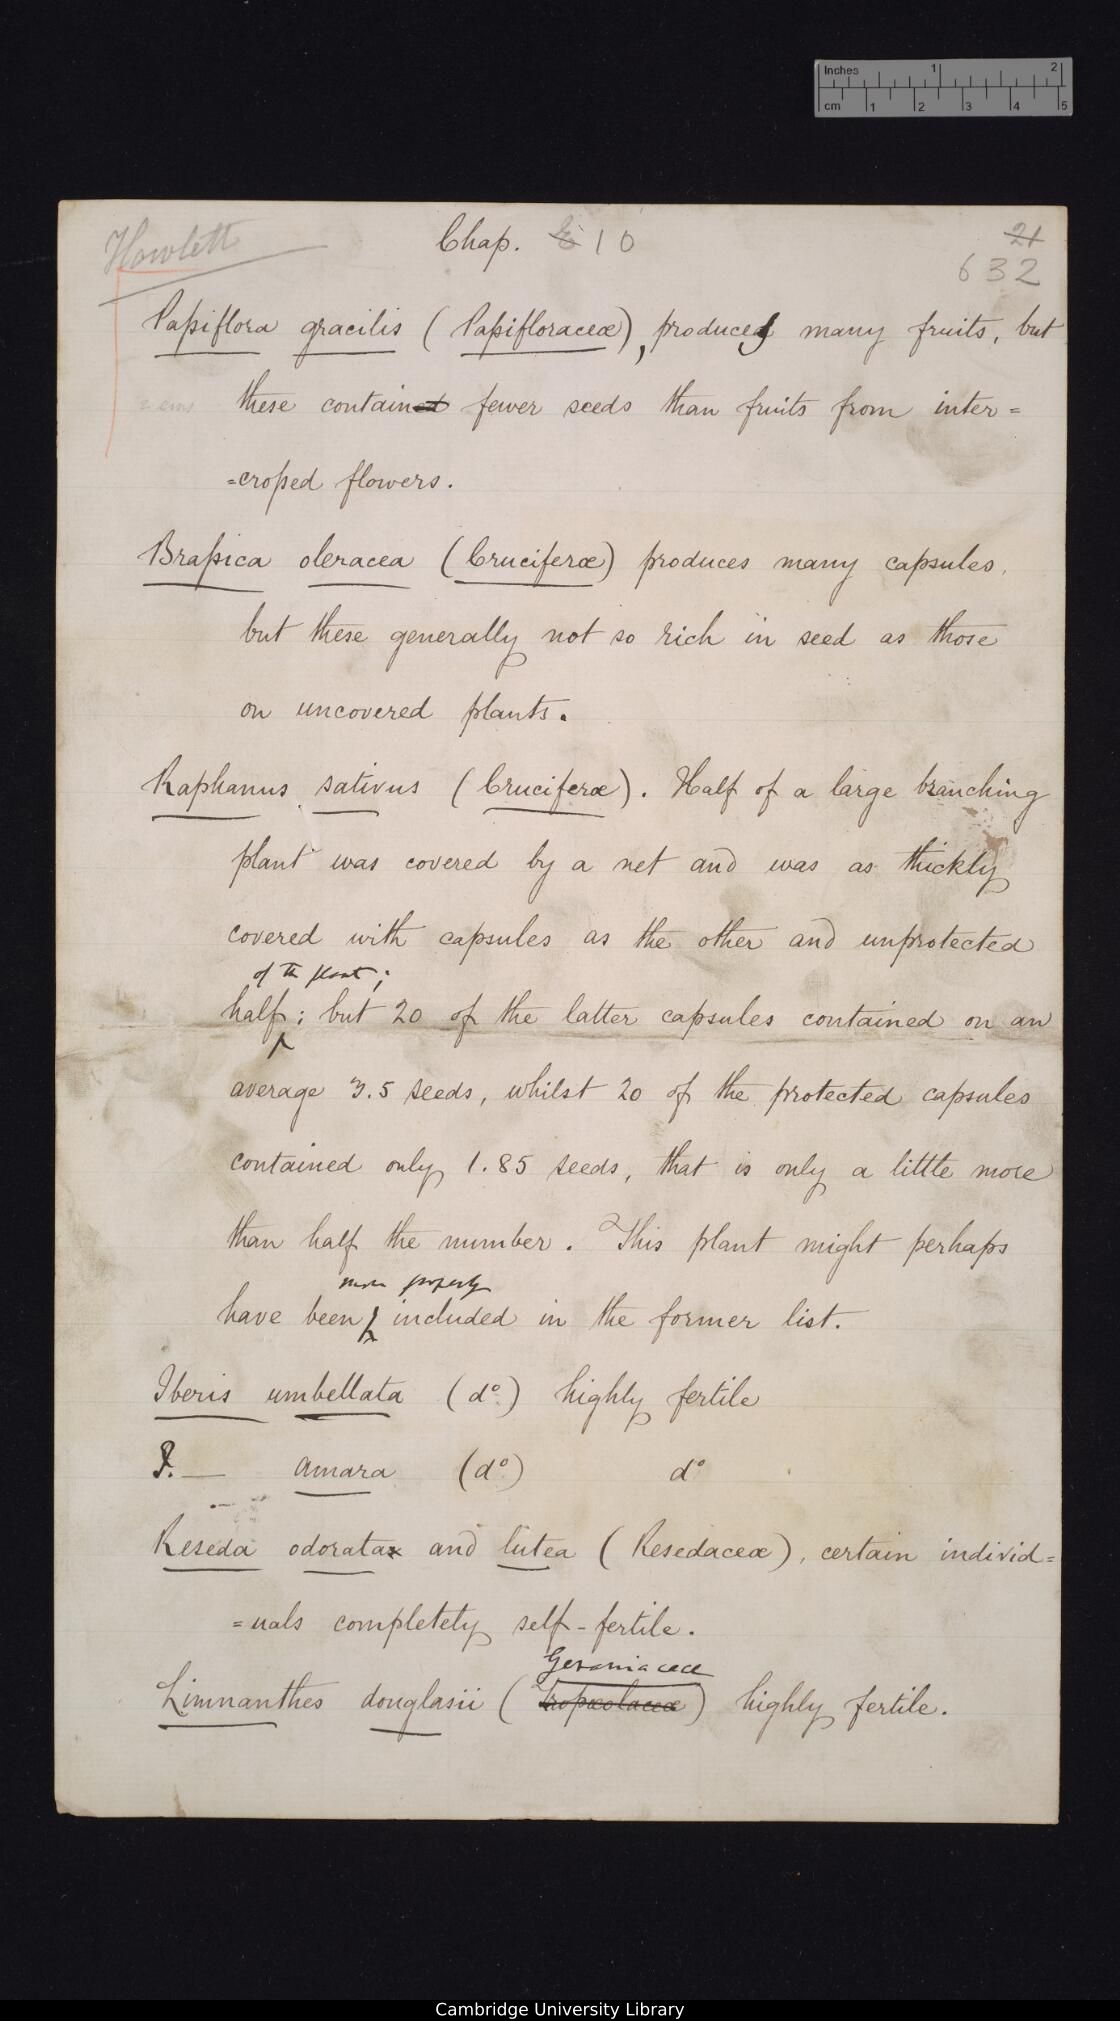 Inches 1 2
cm 1 2 3 4 5
Howlett Chap. 6 10 21
632
Passiflora gracilis (Passifloraceæ), produces many fruits, but
2 ems these contained fewer seeds than fruits from inter=
=crossed flowers.
Brassica oleracea (Cruciferæ) produces many capsules,
but these generally not so rich in seed as those
on uncovered plants.
Raphanus sativus (Cruciferæ). Half of a large branching
plant was covered by a net and was as thickly
covered with capsules as the other and unprotected
of the plant;
half; but 20 of the latter capsules contained on an
average 3.5 seeds, whilst 20 of the protected capsules
contained only 1.85 seeds, that is only a little more
than half the number. This plant might perhaps
more properly
have been included in the former list.
Iberis umbellata (do.) highly fertile
I. — amara (do.) do
Reseda odorata and lutea (Resedaceæ), certain individ=
=uals completely self-fertile.
Geraniaceæ
Limnanthes douglasii (tropæolaceæ) highly fertile.
Cambridge University Library